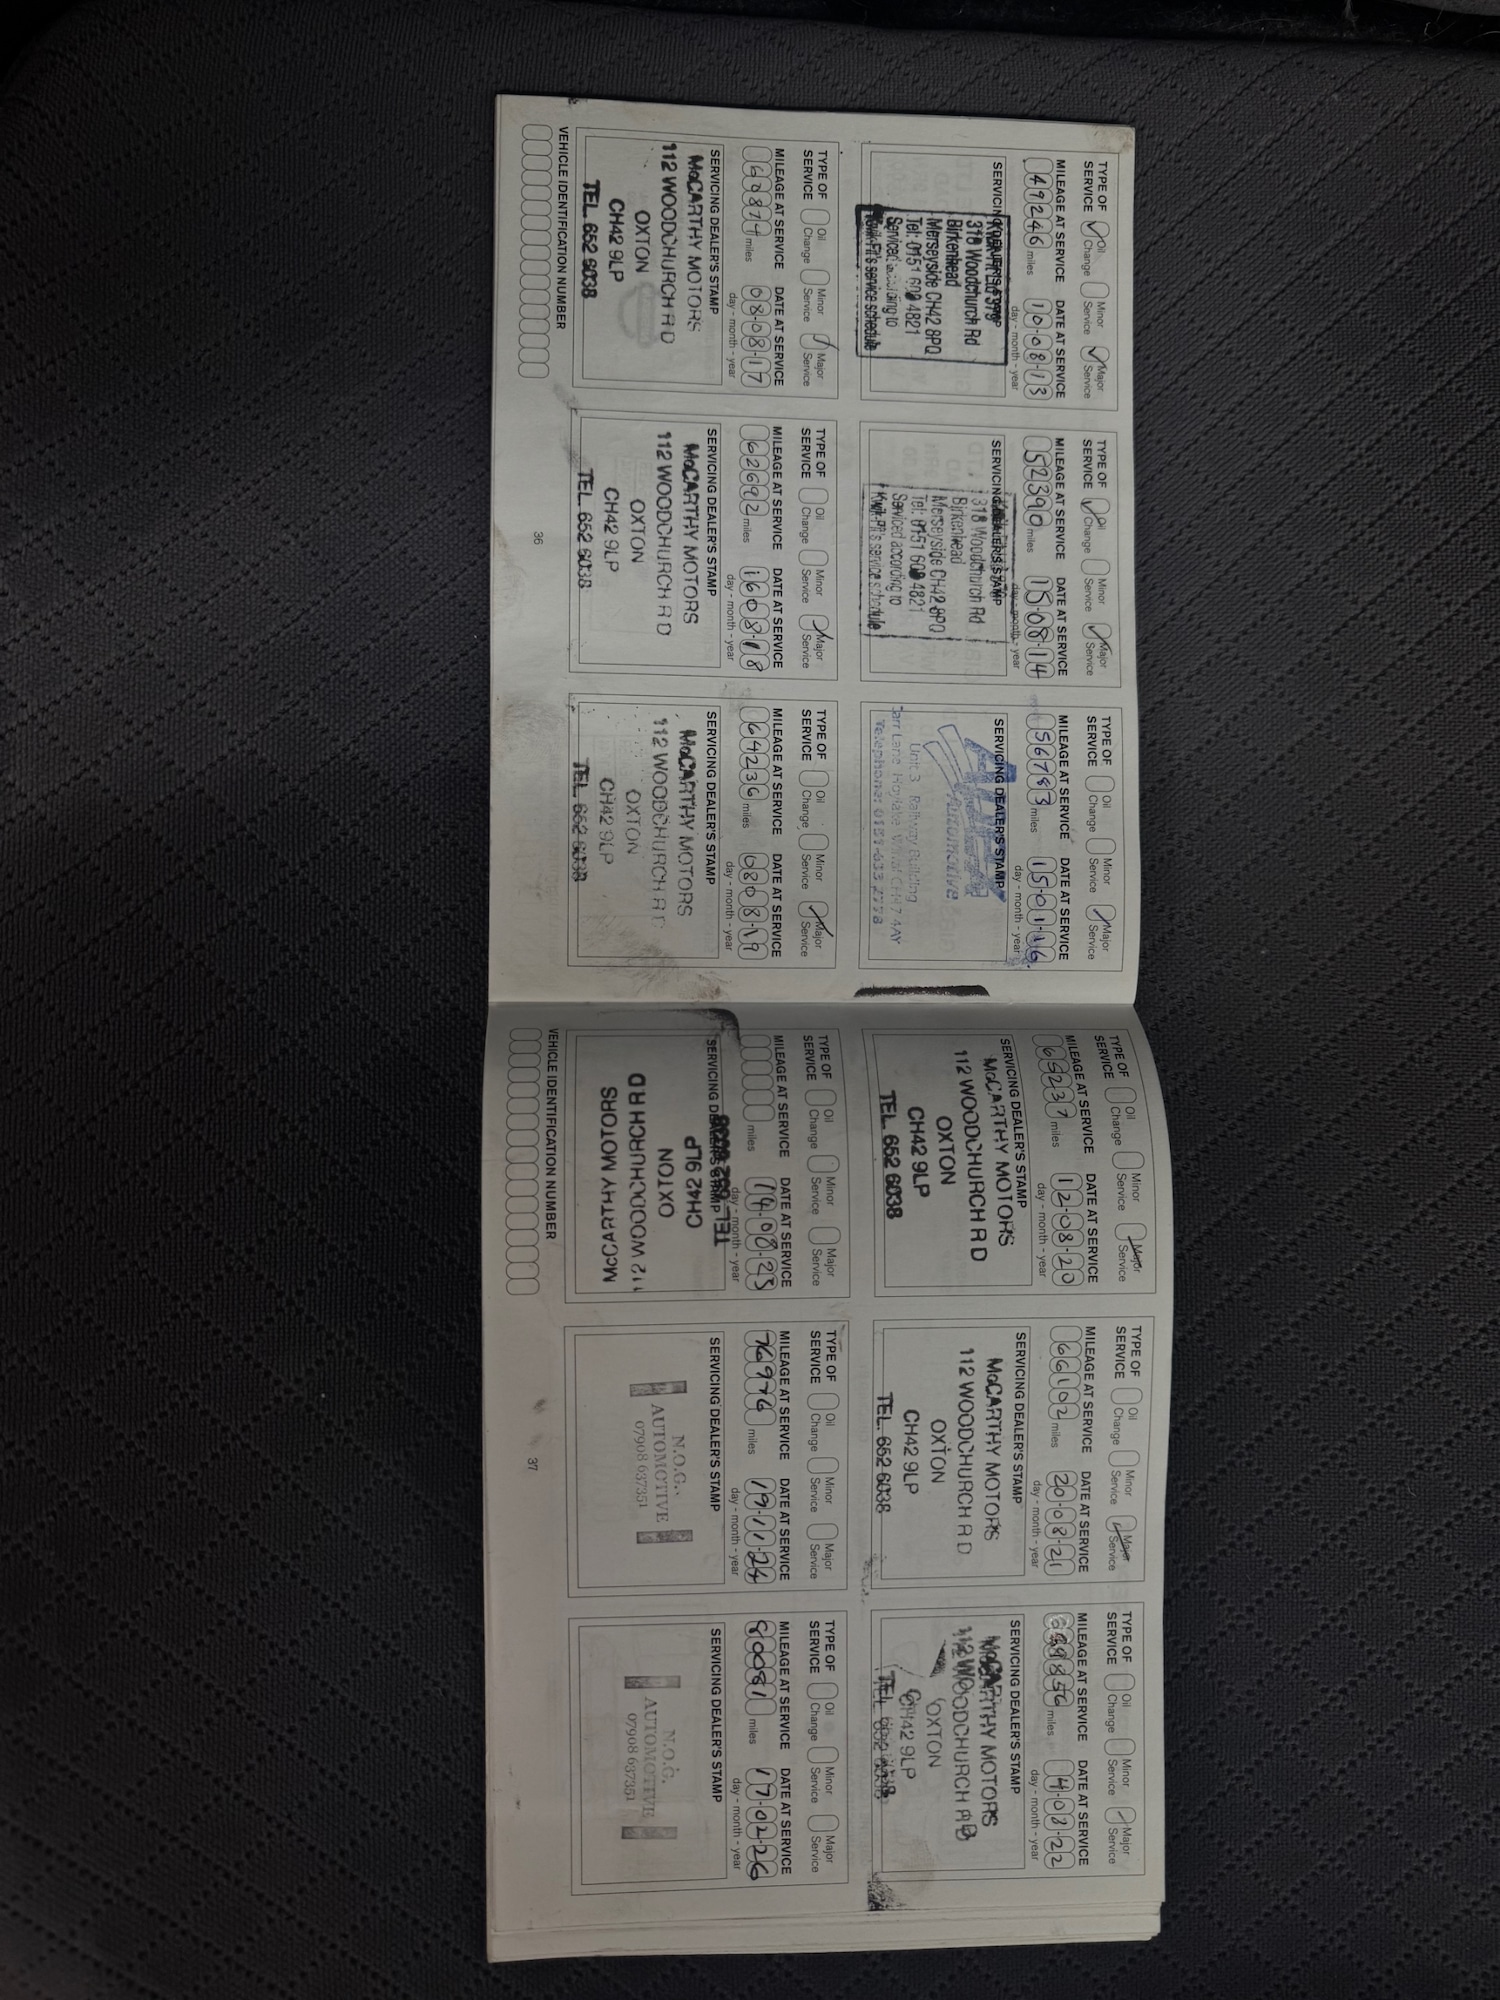 TYPE OF SERVICE Oil Change Minor Service Major Service
MILEAGE AT SERVICE DATE AT SERVICE
49246 miles 10·08·13
day - month - year
SERVICING DEALER'S STAMP
318 Woodchurch Rd
Birkenhead
Merseyside CH42 8PQ
Tel: 0151 609 4821
Serviced according to
Kwik-Fit's service schedule
TYPE OF SERVICE Oil Change Minor Service Major Service
MILEAGE AT SERVICE DATE AT SERVICE
52390 miles 15·08·14
day - month - year
SERVICING DEALER'S STAMP
318 Woodchurch Rd
Birkenhead
Merseyside CH42 8PQ
Tel: 0151 609 4821
Serviced according to
Kwik-Fit's service schedule
TYPE OF SERVICE Oil Change Minor Service Major Service
MILEAGE AT SERVICE DATE AT SERVICE
56783 miles 15·01·16
day - month - year
SERVICING DEALER'S STAMP
Automotive
Unit 3, Railway Building
Carr Lane Hoylake Wirral CH47 4AY
Telephone: 0151-633 2778
TYPE OF SERVICE Oil Change Minor Service Major Service
MILEAGE AT SERVICE DATE AT SERVICE
60874 miles 08·08·17
day - month - year
SERVICING DEALER'S STAMP
McCARTHY MOTORS
112 WOODCHURCH RD
OXTON
CH42 9LP
TEL. 652 6038
TYPE OF SERVICE Oil Change Minor Service Major Service
MILEAGE AT SERVICE DATE AT SERVICE
62692 miles 16·08·18
day - month - year
SERVICING DEALER'S STAMP
McCARTHY MOTORS
112 WOODCHURCH RD
OXTON
CH42 9LP
TEL. 652 6038
TYPE OF SERVICE Oil Change Minor Service Major Service
MILEAGE AT SERVICE DATE AT SERVICE
64236 miles 08·08·19
day - month - year
SERVICING DEALER'S STAMP
McCARTHY MOTORS
112 WOODCHURCH RD
OXTON
CH42 9LP
TEL. 652 6038
VEHICLE IDENTIFICATION NUMBER
36
TYPE OF SERVICE Oil Change Minor Service Major Service
MILEAGE AT SERVICE DATE AT SERVICE
65237 miles 12·08·20
day - month - year
SERVICING DEALER'S STAMP
McCARTHY MOTORS
112 WOODCHURCH RD
OXTON
CH42 9LP
TEL. 652 6038
TYPE OF SERVICE Oil Change Minor Service Major Service
MILEAGE AT SERVICE DATE AT SERVICE
66102 miles 20·08·21
day - month - year
SERVICING DEALER'S STAMP
McCARTHY MOTORS
112 WOODCHURCH RD
OXTON
CH42 9LP
TEL. 652 6038
TYPE OF SERVICE Oil Change Minor Service Major Service
MILEAGE AT SERVICE DATE AT SERVICE
miles 4·08·22
day - month - year
SERVICING DEALER'S STAMP
McCARTHY MOTORS
112 WOODCHURCH RD
OXTON
CH42 9LP
TEL. 652 6038
TYPE OF SERVICE Oil Change Minor Service Major Service
MILEAGE AT SERVICE DATE AT SERVICE
miles 14·08·23
day - month - year
SERVICING DEALER'S STAMP
McCARTHY MOTORS
112 WOODCHURCH RD
OXTON
CH42 9LP
TEL. 652 6038
TYPE OF SERVICE Oil Change Minor Service Major Service
MILEAGE AT SERVICE DATE AT SERVICE
76976 miles 19·11·24
day - month - year
SERVICING DEALER'S STAMP
N.O.G.
AUTOMOTIVE
07908 637351
TYPE OF SERVICE Oil Change Minor Service Major Service
MILEAGE AT SERVICE DATE AT SERVICE
80081 miles 17·02·26
day - month - year
SERVICING DEALER'S STAMP
N.O.G.
AUTOMOTIVE
07908 637351
VEHICLE IDENTIFICATION NUMBER
37